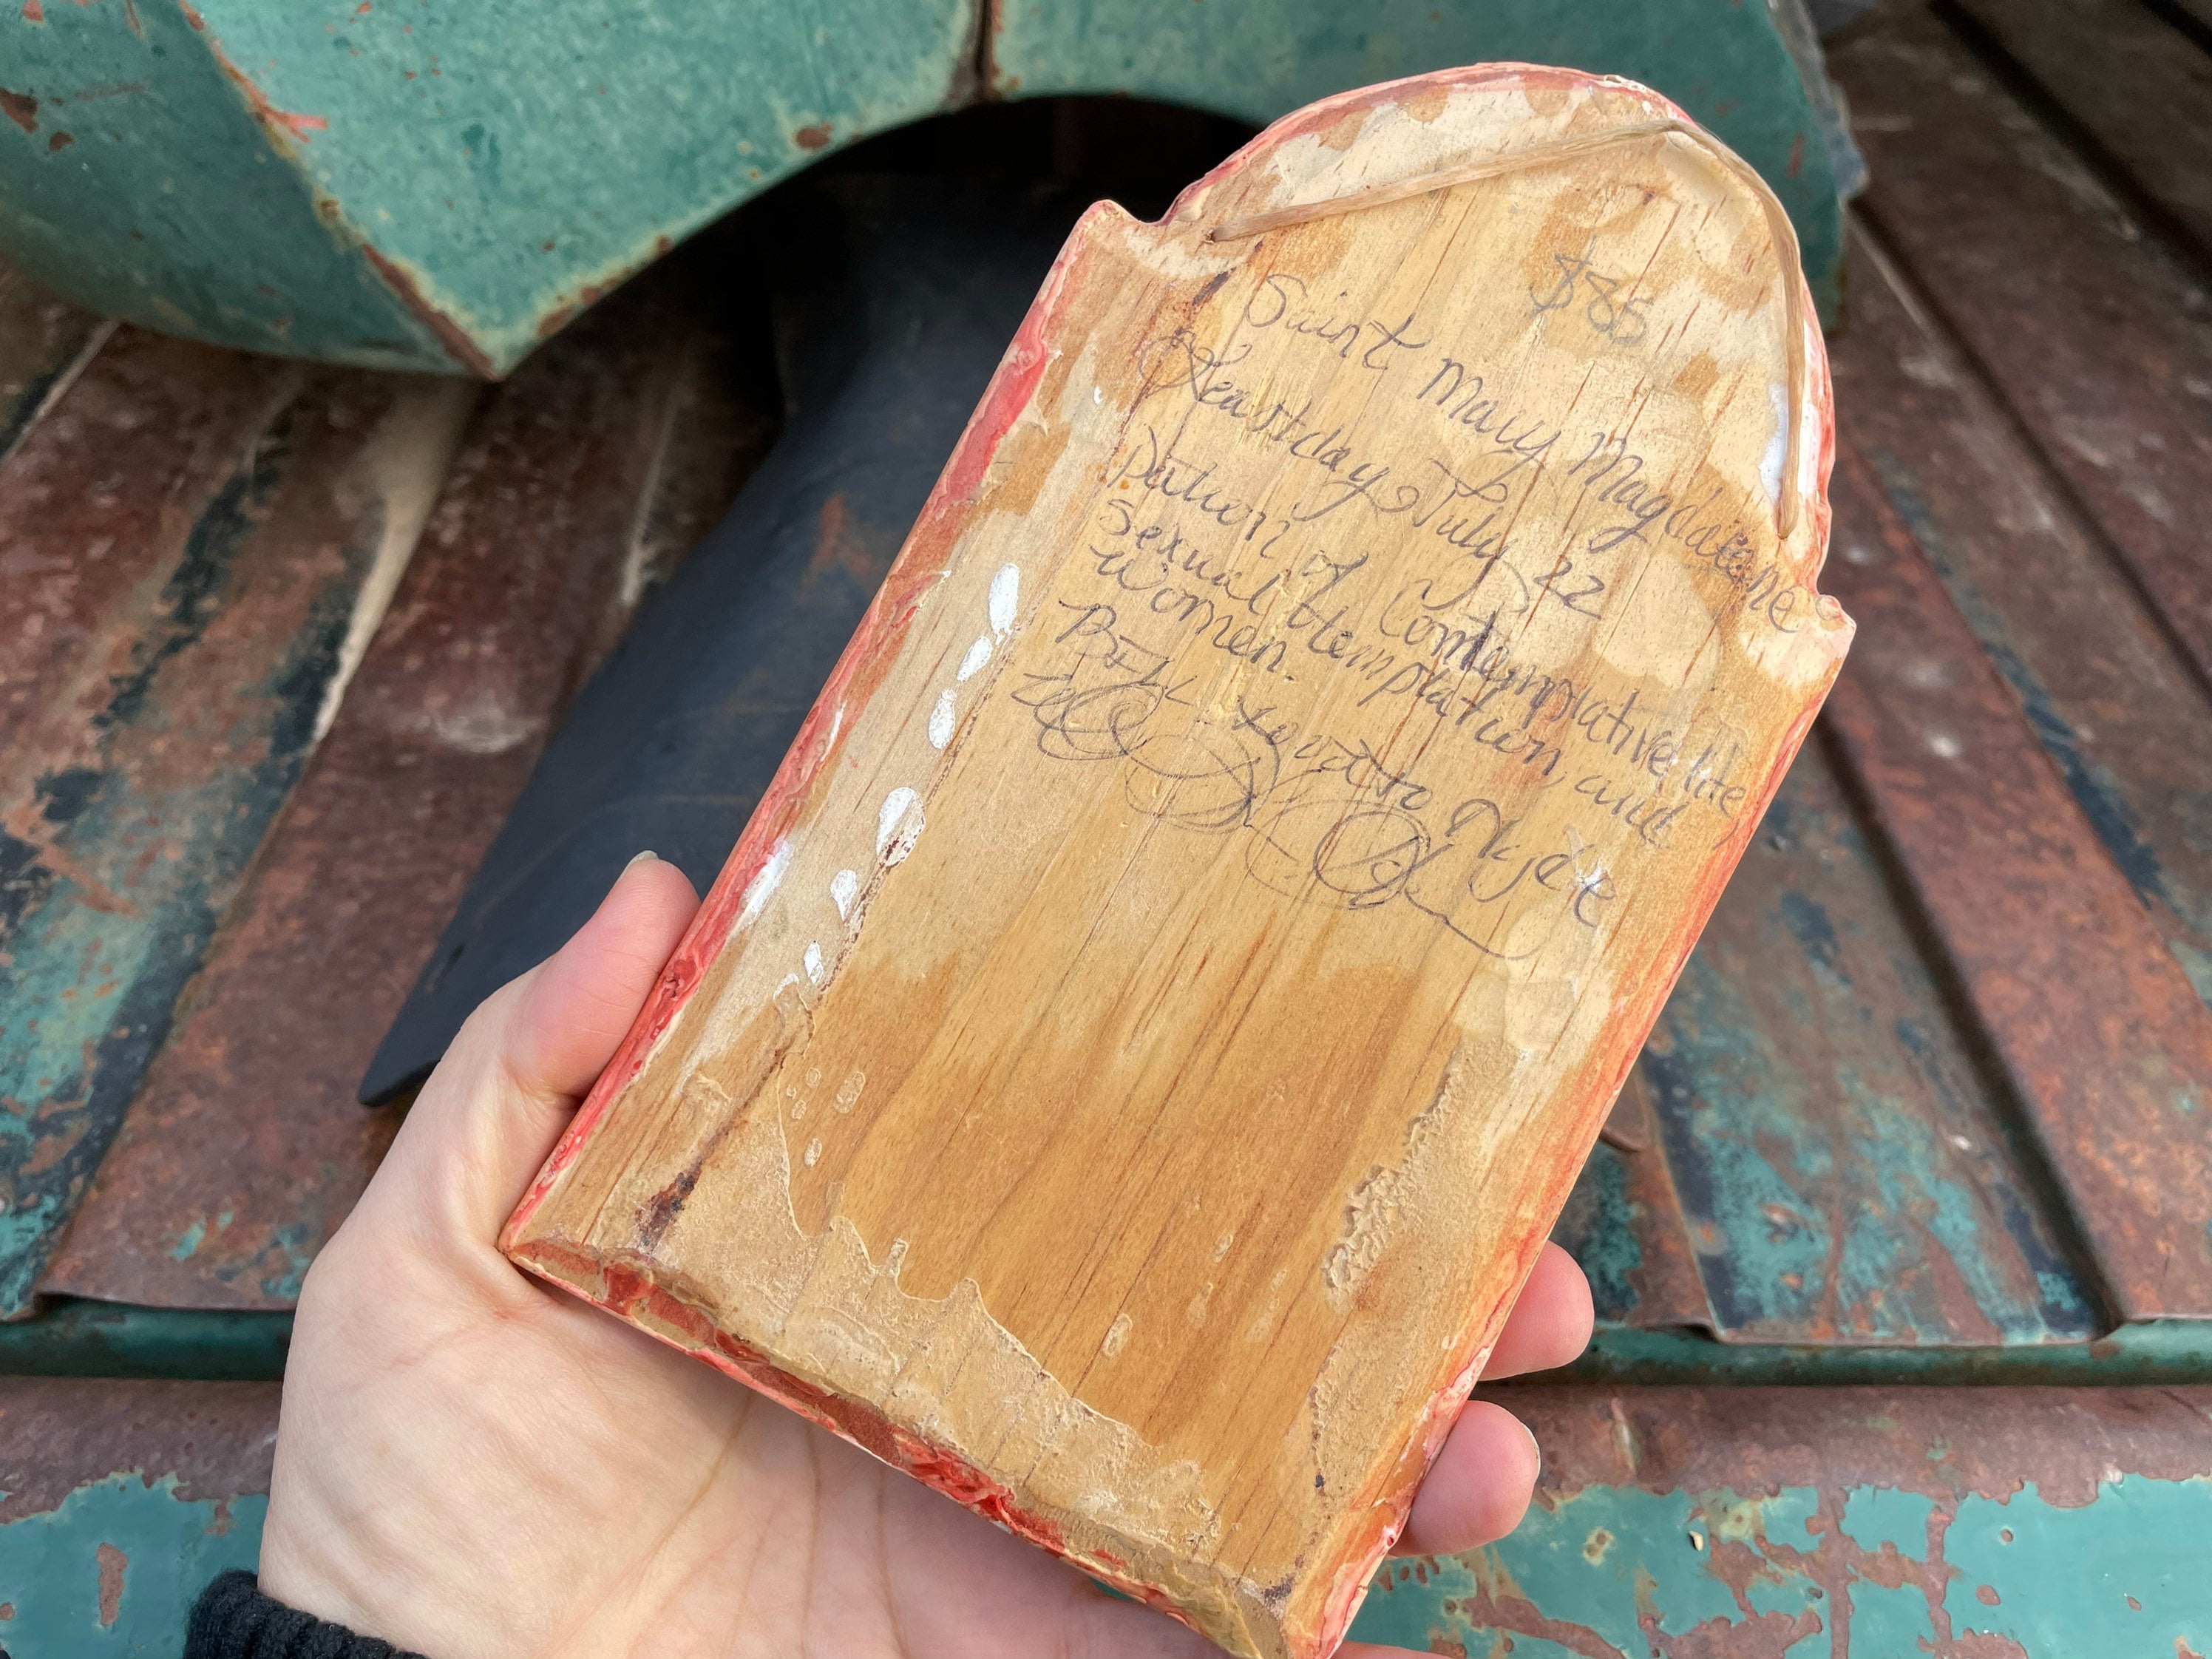 $85
Saint Mary Magdalene
Feastday July 22
patron of Contemplative life,
sexual temptation and
women.
to Nyde